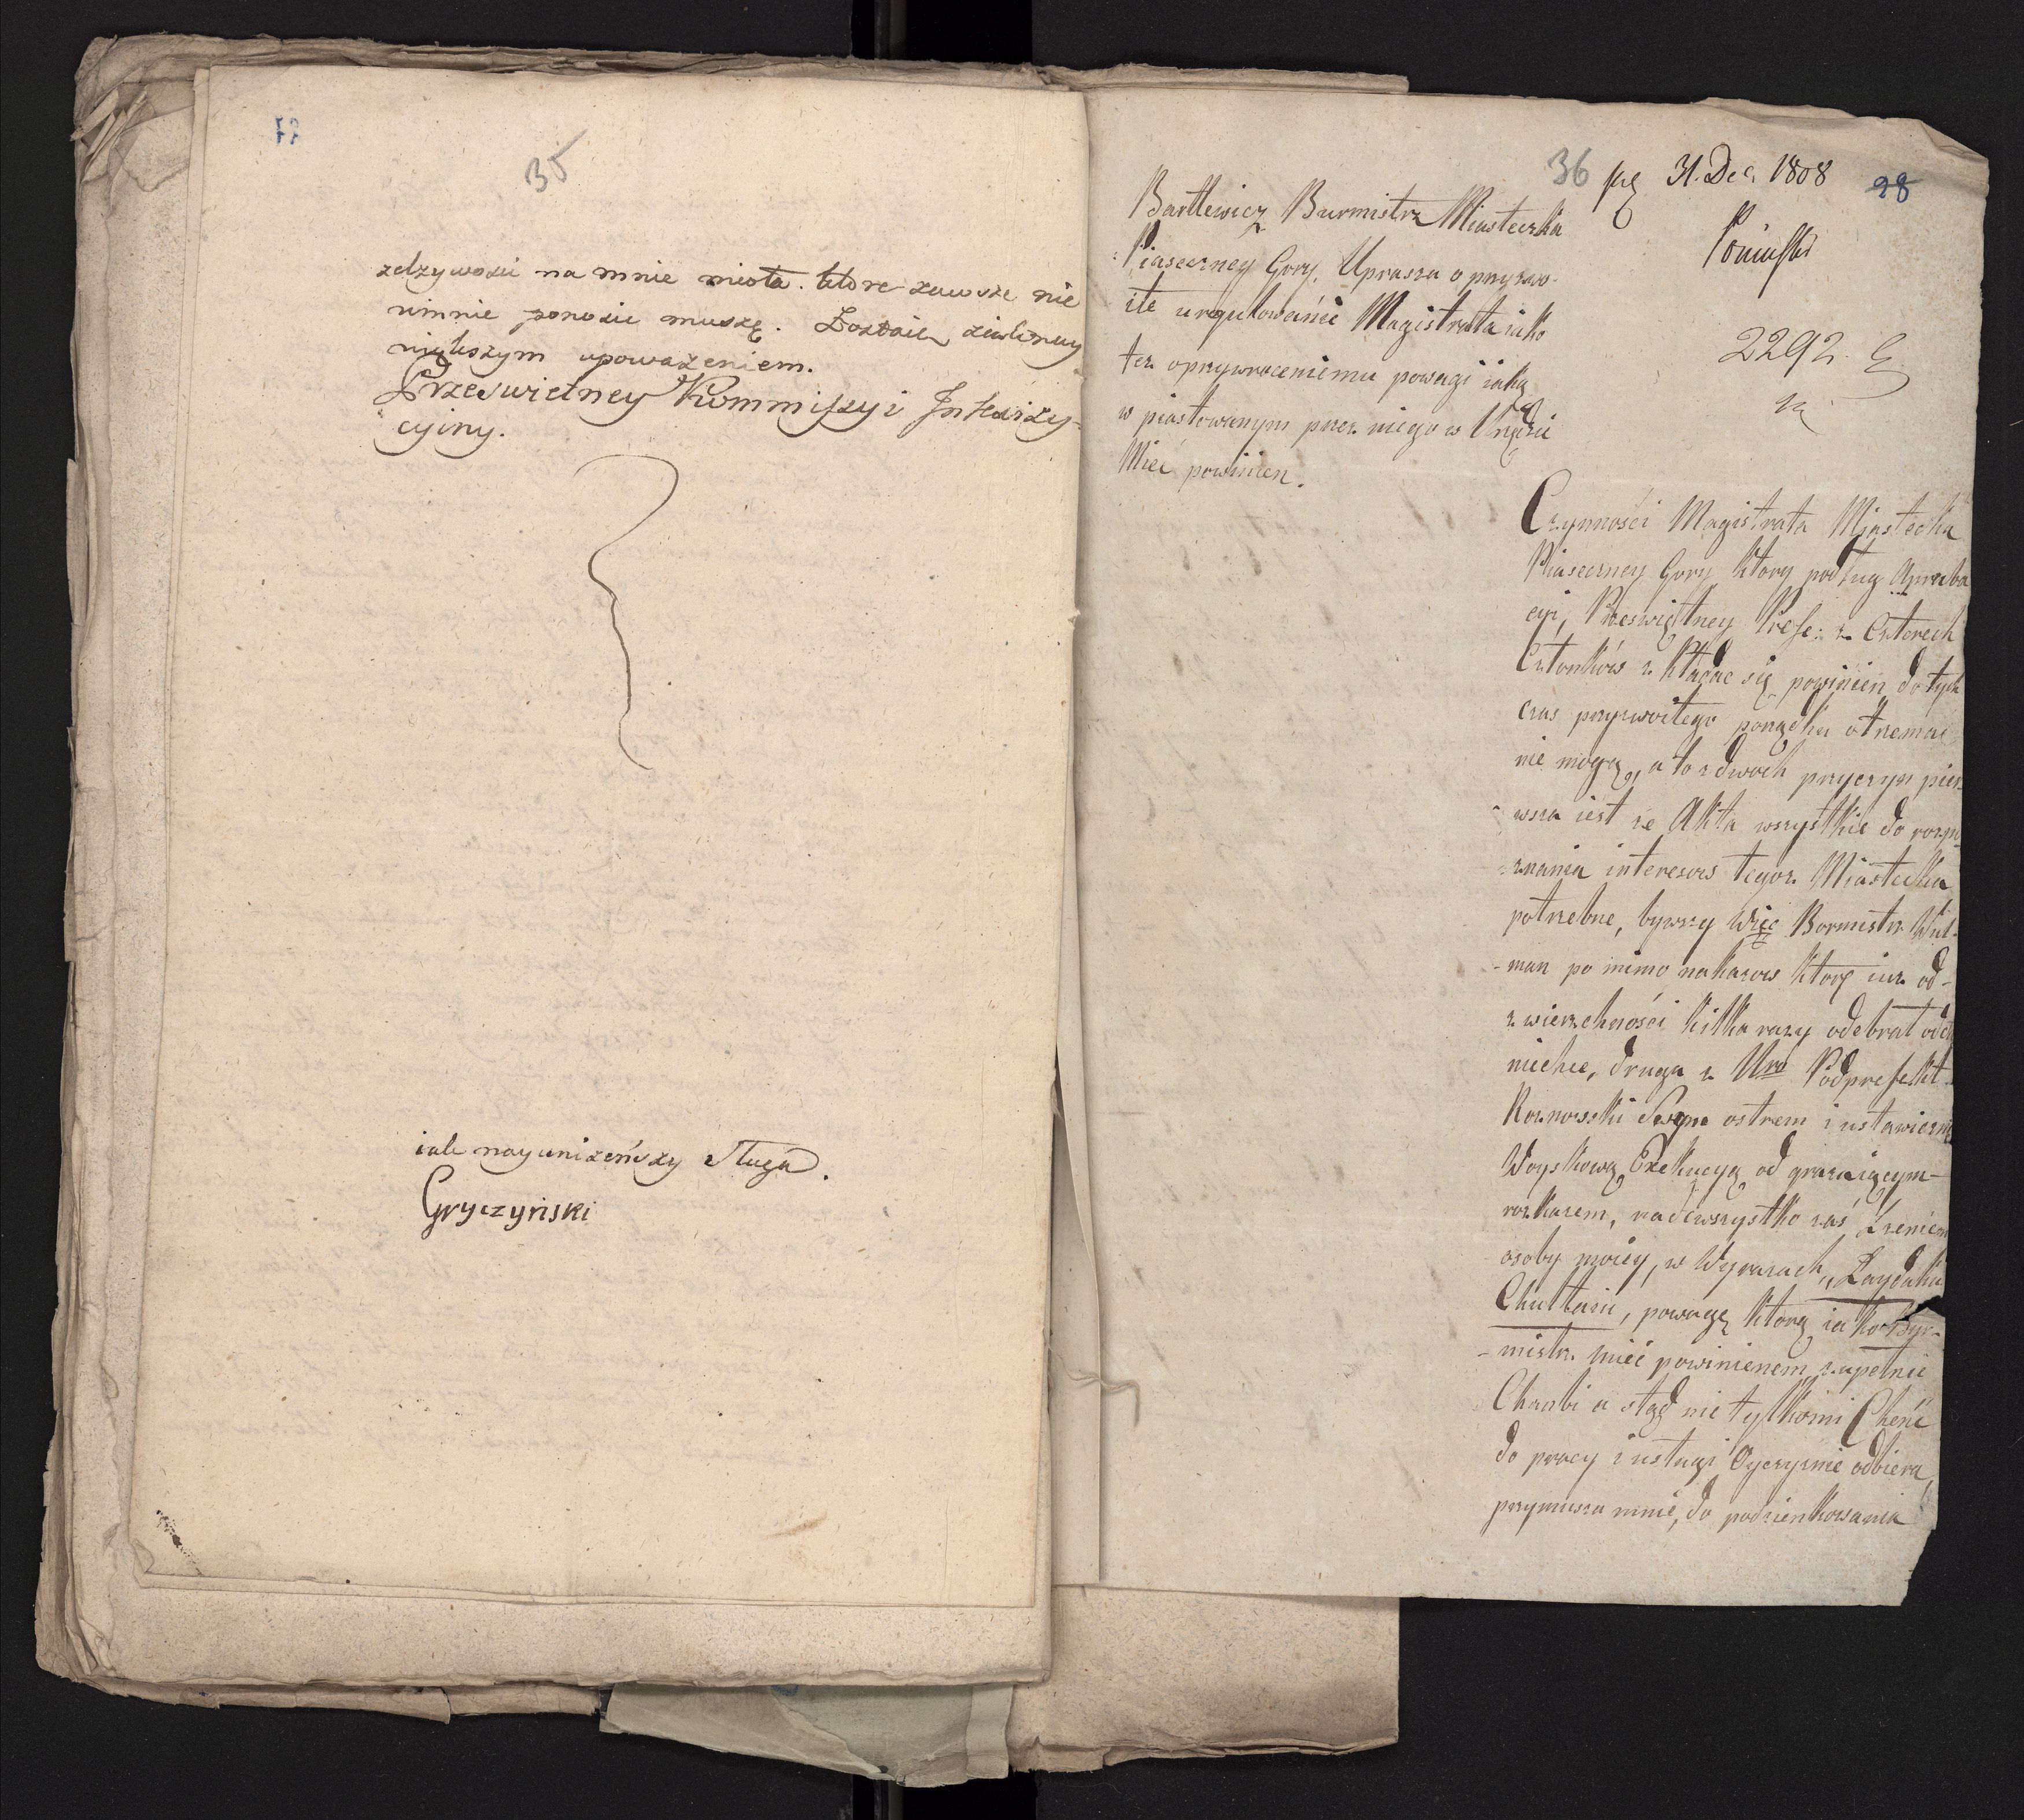 35
zelzywosci na mnie miota. ktore zawsze nie
winnie ponosic muszę. Zostaie z
większym upoważeniem.
Przeswietney Kommissyi Inkwizy-
cyiny.
iak nayuniżeńszy sługa.
Gryczyński
36 31. Dec. 1808 28
Bartlewicz Burmistrz Miasteczka
Piaseczney Gory, Uprasza o przyzwo-
ite uregulowanié Magistrata iako
tez o przywroceniemu powagi iaką
w piastowanym przez niego w Urzędzie
Mieć powinien.
Poniński
2292.
Czynności Magistrata Miastecka
Piaseczney Gory ktory podług Aproba
cyi, Przeswiętney Prefe: z Czterech
Członków z kładac się powinien do tych
czas przyzwoitego porządku otrzemac
nie mogą, a to z dwoch przyczyn pier-
wsza iest ze Akta wszystkie do rozpo
-znania interesow tegoz Miasteczka
potrzebne, bywszy Więc Bormistrz Wit-
-man po mimo nakazow ktorę iuz od-
zwierzchności kilka razy odebrał odd
niechce, druga z Uro Podprefekt
Roznowski Swym ostrem i ustawiczn
Woyskową Exekucyą od grazaiącym
rozkazem, nadewszystko zaś Lzeniem
osoby moiéy, w Wyrazach, Łaydaku
Chultaiu, powagę ktorą iako Bur-
-mistrz mieć powinienem, zupełnie
Chanbi a stąd nie tylko mi Chęńć
do pracy i usługi Oyczyznie odbiera,
przymusza mnie, do podzienkowania